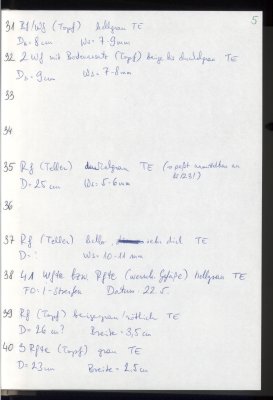 5
31 Rf/Wf (Topf) hellgrau TE
D= 8cm Ws= 7-9mm
32 2 Wf mit Bodenansatz (Topf) beige bis dunkelgrau TE
D= 9cm Ws= 7-8mm
33
34
35 Rf (Teller) dunkelgrau TE (= paßt unmittelbar an
D= 25cm Ws= 5-6mm
36
37 Rf (Teller) heller sehr dick TE
D= ? Ws= 10-11mm
38 41 Wfte bzw. Rfte (versch. Gefäße) hellgrau TE
FO: 1-Streifen Datum: 22.5.
39 Rf (Topf) beigegrau/rötlich TE
D= 26cm? Breite= 3,5cm
40 3 Rfte (Topf) grau TE
D= 23cm Breite= 2.5cm